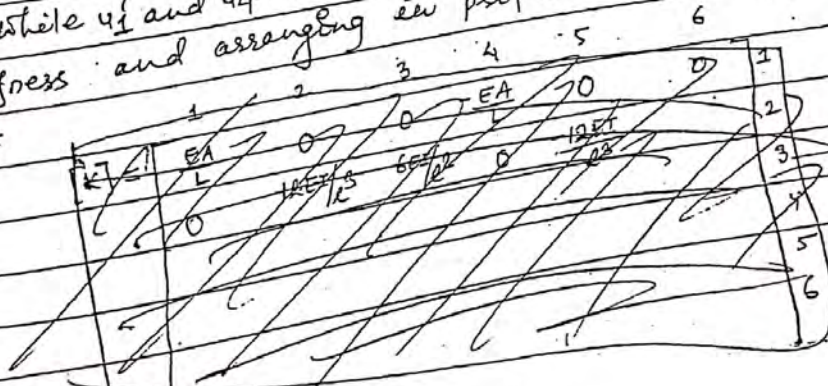 while u1 and u4
and arranging in
1 2 3 4 5 6
[K] = EA/L 0 0 EA/L 0 0 1
0 12EI/l³ 6EI/l² 0 12EI/l³ 2
3
4
5
6